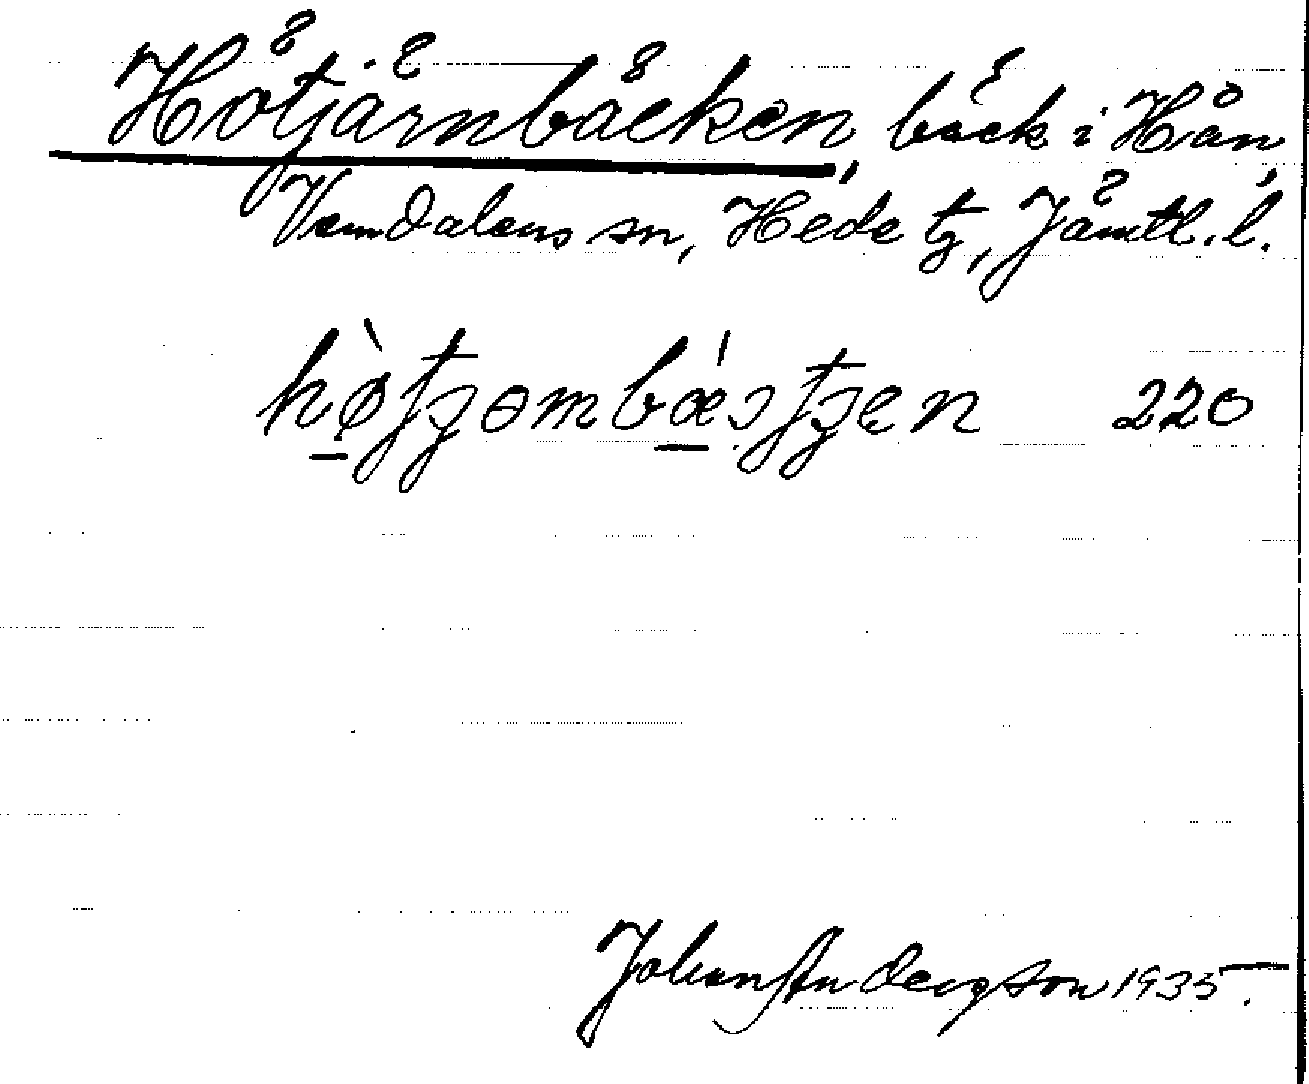 Hötjärnbäcken, bäck i Hån,
Vemdalens sn, Hede tg, Jämtl. l.
220
Johan Andersson 1935.